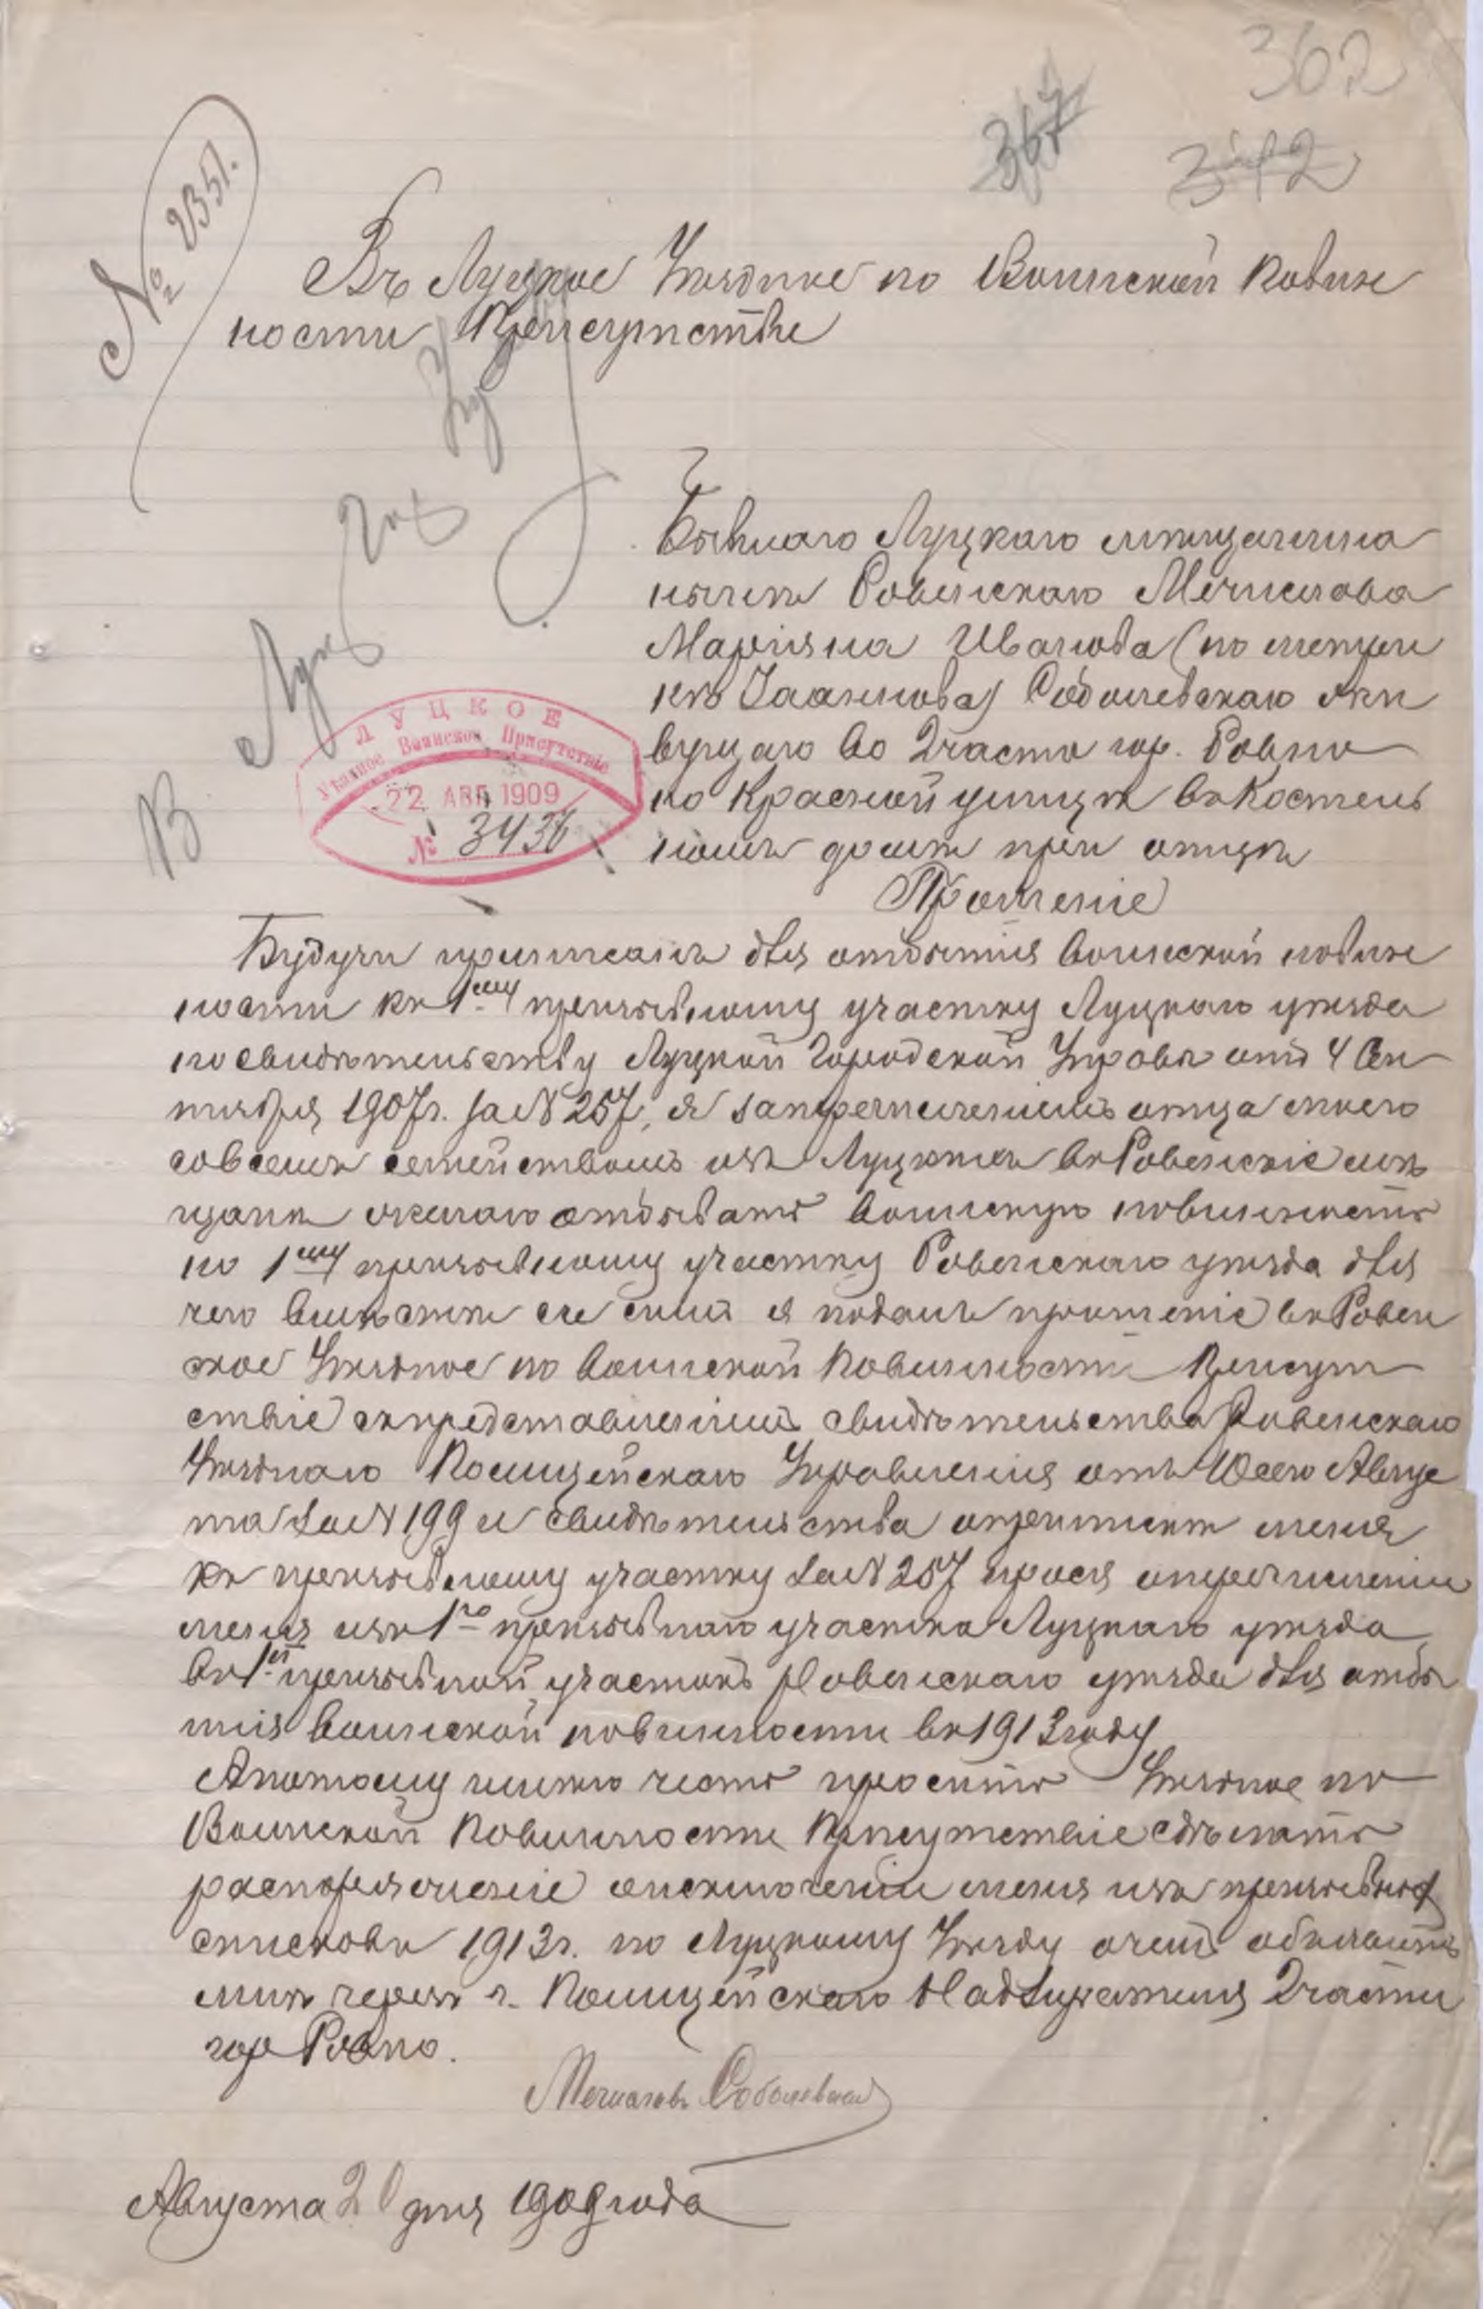 362
367
342
№ 2351.
Въ Луцкое Уѣздное по Воинской Повин
ности Присутствіе
Бывшаго Луцкаго мѣщанина
нынѣ Ровенскаго Мечислава
Маріяна Иванова (по метри
кѣ Іоаннова) Соболевскаго жи
вущаго во 2 части гор. Ровно
по Красной улицѣ въ Костель
номъ домѣ при отцѣ
ЛУЦКОЕ
Уѣздное Воинское Присутствіе
22 АВГ 1909
№ 3436
Прошеніе
Будучи приписанъ для отбытія воинской повин
ности къ 1му призывному участку Луцкаго уѣзда
по свидѣтельству Луцкой Городской Управы отъ 4 Сен
тября 1907 г. за N 257, я за перечисленіемъ отца моего
со всемъ семействомъ изъ Луцкихъ въ Ровенскіе мѣ
щане желаю отбывать воинскую повинность
по 1му призывному участку Ровенскаго уѣзда для
чего вмѣстѣ съ симъ я подалъ прошеніе въ Ровен
ское Уѣздное по воинской Повинности Присут
ствіе съ представленіемъ свидѣтельства Ровенскаго
Уѣзднаго Полицейскаго Управленія отъ 10 сего Авгус
та за N 199 и свидѣтельства о припискѣ меня
къ призывному участку за N 257 прося о перечисленіи
меня изъ 1го призывнаго участка Луцкаго уѣзда
въ 1й призывной участокъ Ровенскаго уѣзда для отбы
тія воинской повинности въ 1913 году
А потому имѣю честь просить Уѣздное по
Воинской Повинности Присутствіе сдѣлать
распоряженіе о исключеніи меня изъ призывныхъ
списковъ 1913 г. по Луцкому Уѣзду о чемъ объявить
мнѣ черезъ г. Полицейскаго Надзирателя 2 части
гор Ровно.
Мечиславъ Соболевскій
Августа 20 дня 1909 года